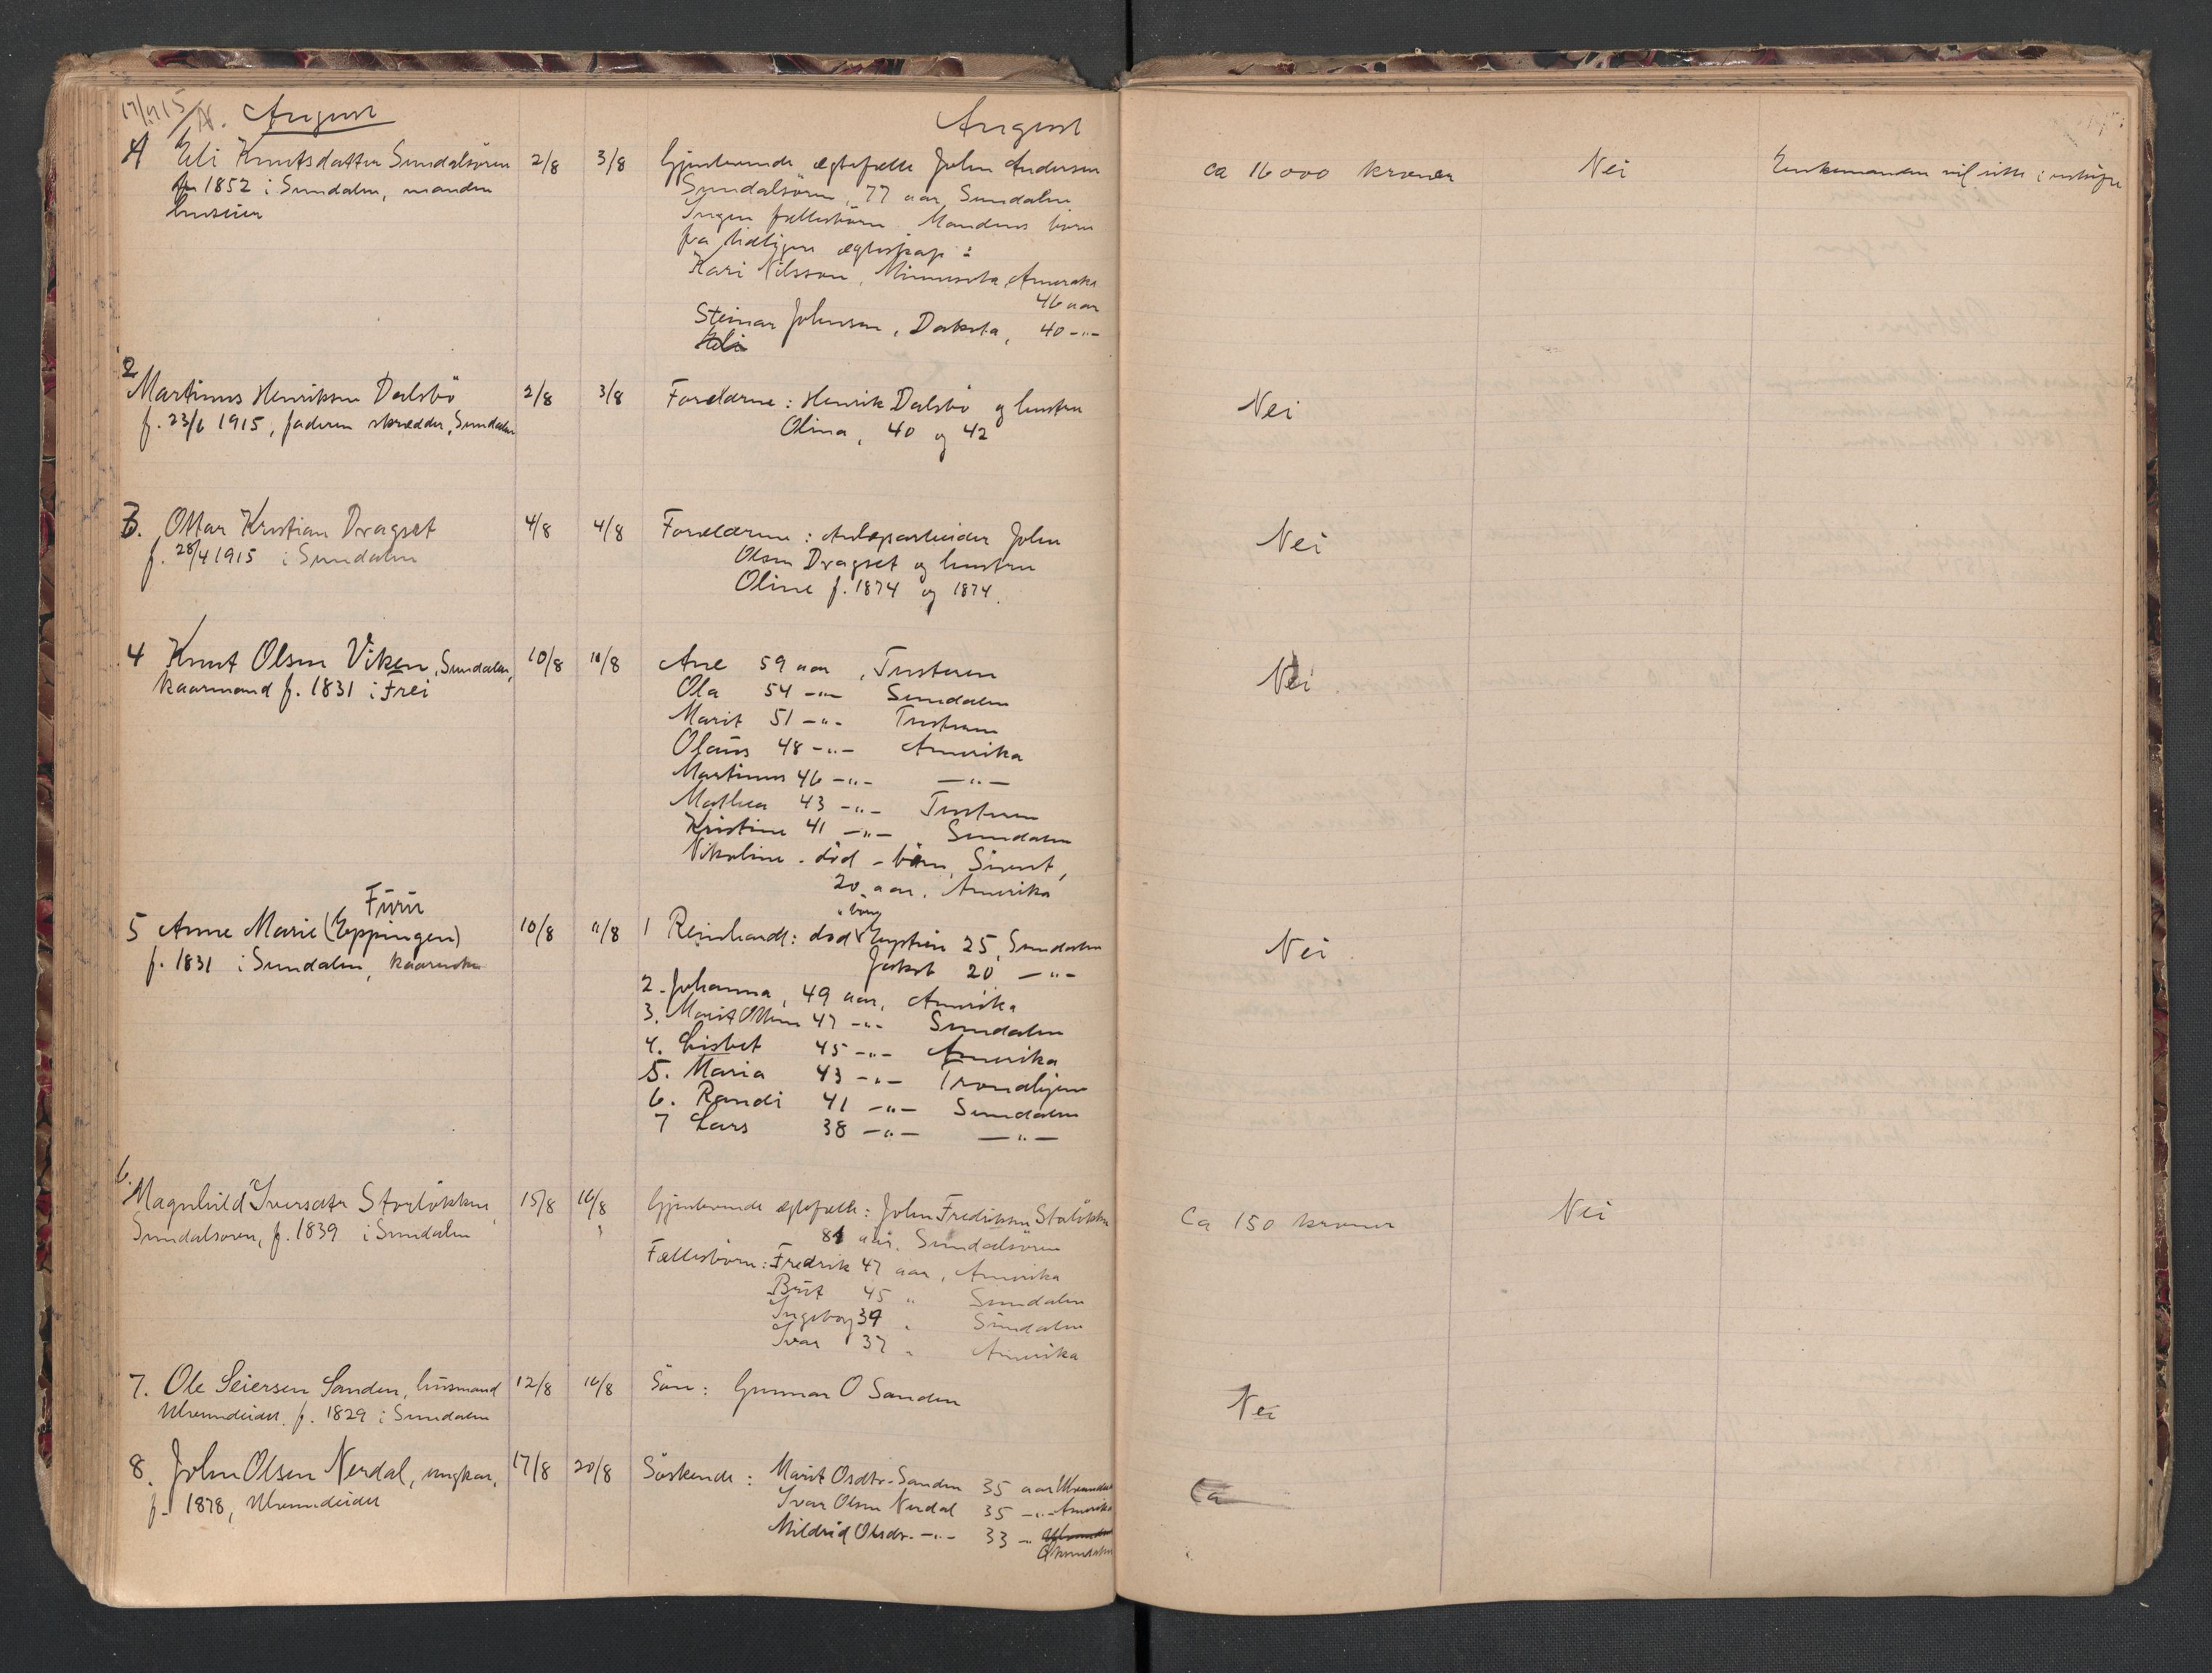 August
August
1 Eli Knutsdatter Sundalsören 2/8 3/8 Gjenlevende ægtefælle John Andersen ca 16000 kroner Nei Enkemanden vil sitte i uskifte
f. 1852 i Sundalen, manden Sundalsören, 77 aar, Sundalen
huseier Ingen fællesbörn. Mandens börn
fra tidligere ægteskap:
Kari Nilsson, Minnesota, Amerika
46 aar
Steinar Johnsen, Dakota, 40 -"-
2
Martinus Henriksen Dalsbö 2/8 3/8 Forældrene: Henrik Dalsbö og hustru Nei
f. 23/6 1915, faderen skrædder, Sundalen Olina, 40 og 42
3. Ottar Kristian Dragset 4/8 4/8 Forældrene: Anlægsarbeider John Nei
f. 28/4 1915 i Sundalen Olsen Dragset og hustru
Oline f. 1874 og 1874.
4 Knut Olsen Viken, Sundalen, 10/8 10/8 Ane 59 aar, Tusteren Nei
kaarmand f. 1831 i Frei Ola 54 -"- Sundalen
Marit 51 -"- Tusteren
Olaus 48 -"- Amerika
Martinus 46 -"- -"-
Mathea 43 -"- Tusteren
Kristine 41 -"- Sundalen
Nikoline - död - barn, Sivert,
20 aar, Amerika
Furu
5 Anne Marie (Eppingen) 10/8 11/8 1 Reinhardt: död, börn 25, Sundalen Nei
f. 1831 i Sundalen, kaarenke Jakob 20 -"-
2. Johanna, 49 aar, Amerika
3. Marit 47 -"- Sundalen
4. Lisbet 45 -"- Amerika
5. Maria 43 -"- Trondhjem
6. Randi 41 -"- Sundalen
7 Lars 38 -"- -"-
6.
Magnhild Iversdtr Storlökken, 15/8 16/8 Gjenlevende ægtefælle: John Fredriksen Storlökken Ca 150 kroner Nei
Sundalsoren, f. 1839 i Sundalen 81 aar. Sundalsören
Fællesbörn: Fredrik 47 aar, Amerika
Brit 45 " Sundalen
Ingeborg 39 " Sundalen
Ivar 37 " Amerika
7. Ole Seiersen Sanden, husmand 12/8 16/8 Sön: Gunnar O Sanden Nei
Ulvundeidet f. 1829 i Sundalen
8. John Olsen Nerdal, ungkar, 17/8 20/8 Söskende: Marit Osdtr. Sanden 35 aar Ulvundeidet Ca
f. 1878, Ulvundeidet Ivar Olsen Nerdal 35 -"- Amerika
Mildrid Olsdr. -"- 33 -"-